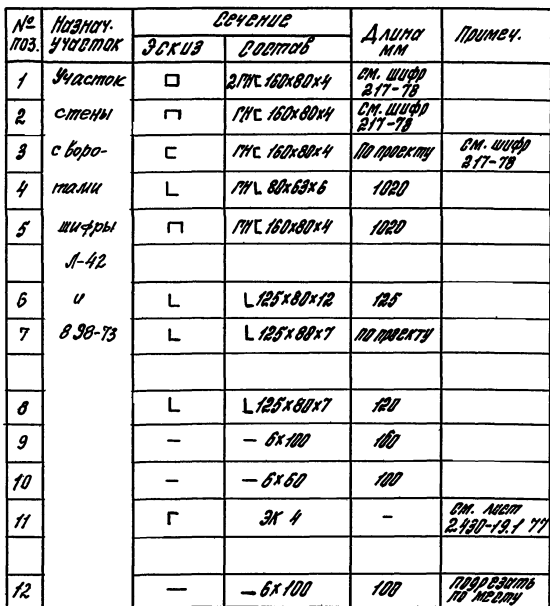 № поз. Назнач. участок Сечение Длина мм Примеч.
Эскиз Состав
1 Участок 2ГНС 160x80x4 См. шифр 217-78
2 стены ГНС 160x80x4 См. шифр 217-78
3 с воро- ГНС 160x80x4 По проекту См. шифр 217-78
4 тами ГНL 80x63x6 1020
5 шифры ГНС 160x80x4 1020
Л-42
6 и L 125x80x12 125
7 898-73 L 125x80x7 по проекту
8 L 125x80x7 120
9 — 6x100 160
10 — 6x60 100
11 ЭК 4 — См. лист 2.430-19.1 77
12 — 6x100 100 подрезать по месту